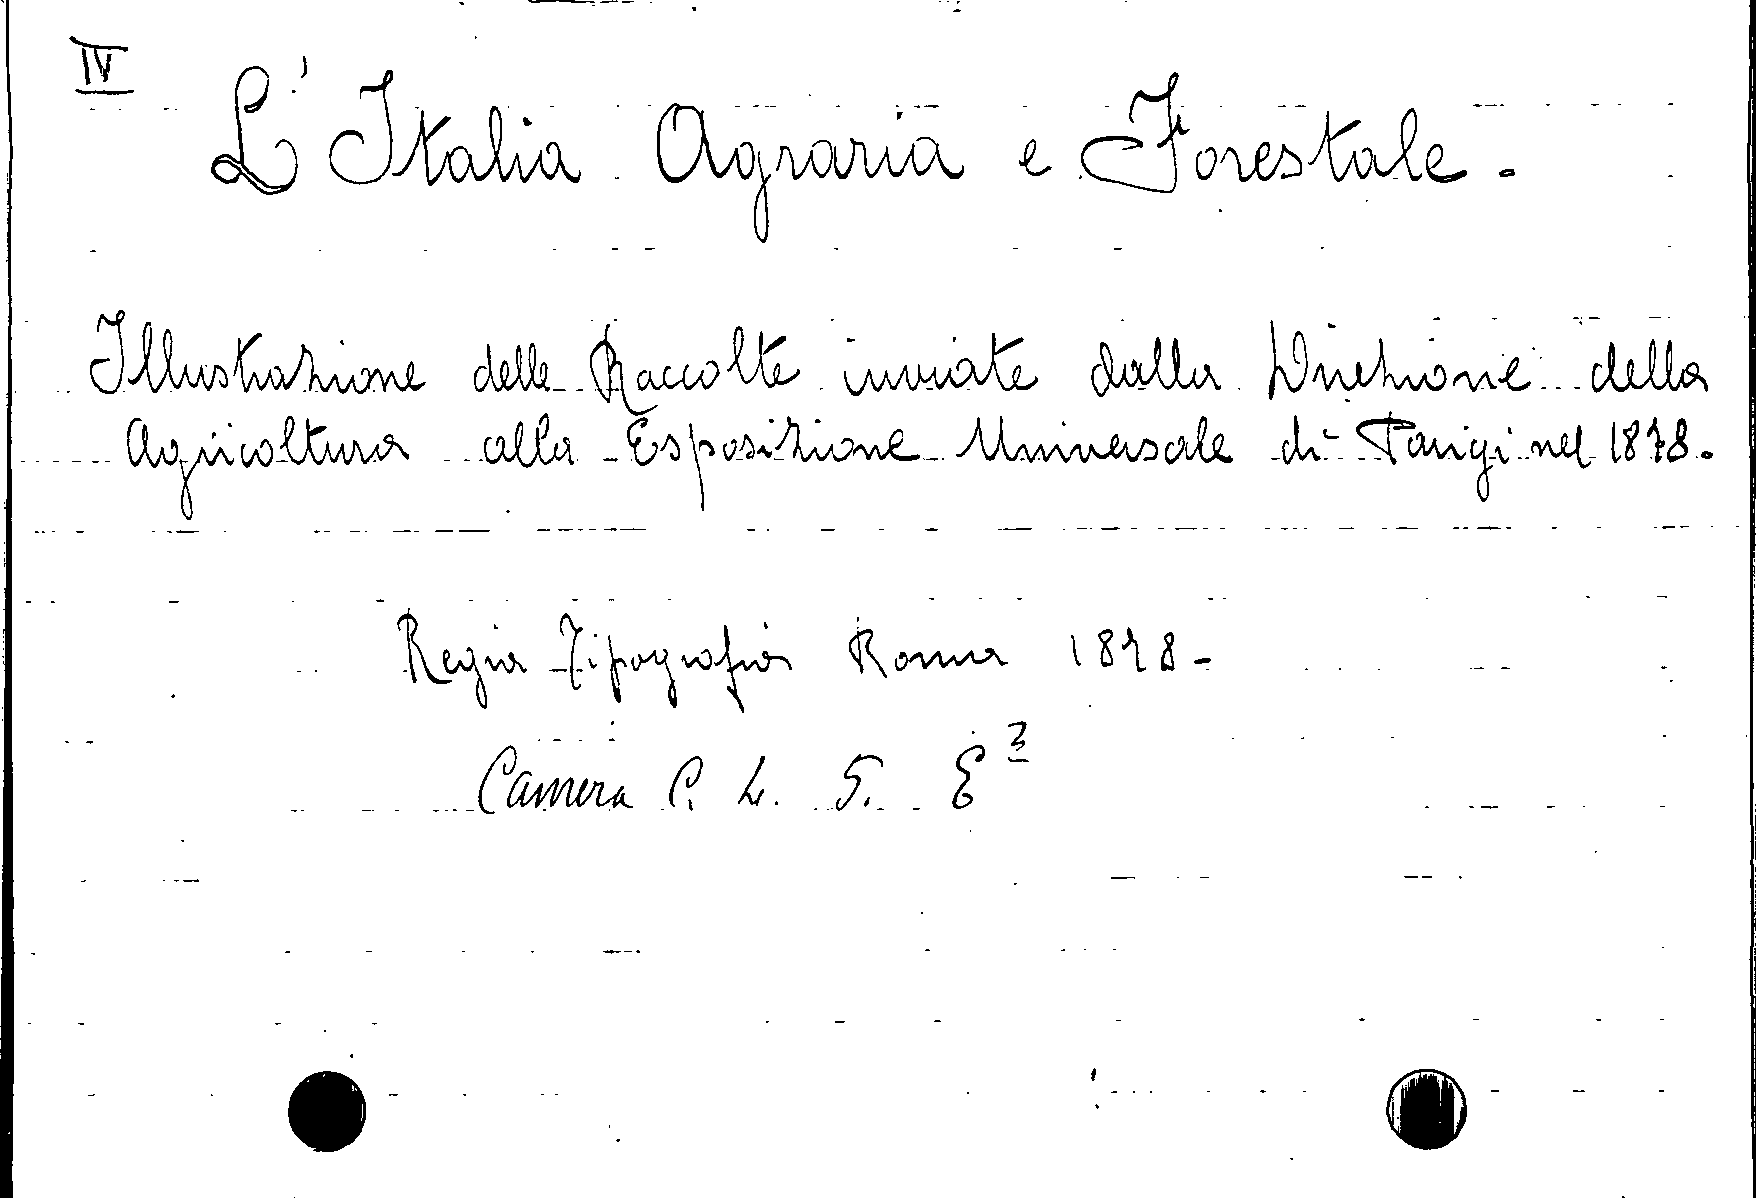 IV
L'Italia Agraria e Forestale.
Illustrazione delle Raccolte inviate dalla Direzione della
Agricoltura alla Esposizione Universale di Parigi nel 1878.
Regia Tipografia Roma 1878-
Camera C. L. 5. E 3